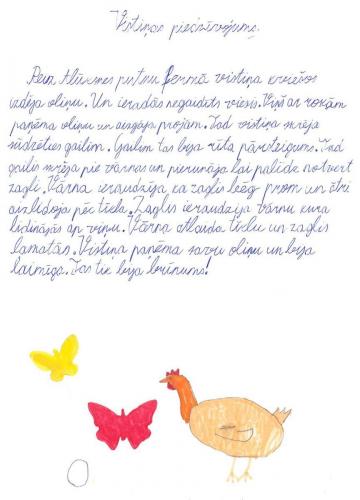 Vistiņas piedzīvojums.
Reiz Alūksnes putnu fermā vistiņa krēslos
izdēja oliņu. Un ieradās negaidīts viesis. Viņš ar rokām
paņēma oliņu un aizgāja projām. Tad vistiņa skrēja
sūdzēties gailim. Gailim tas bija rīta pārsteigums. Tad
gailis skrēja pie vārnas un pierunāja lai palīdz notvert
zagli. Vārna ieraudzīja ka zaglis bēg prom un ātri
aizlidoja pēc tīkla. Zaglis ieraudzīja vārnu kura
lidinājās ap viņu. Vārna atlaida tīklu un zaglis
lamatās. Vistiņa paņēma savu oliņu un bija
laimīga. Tas tik bija brīnums!